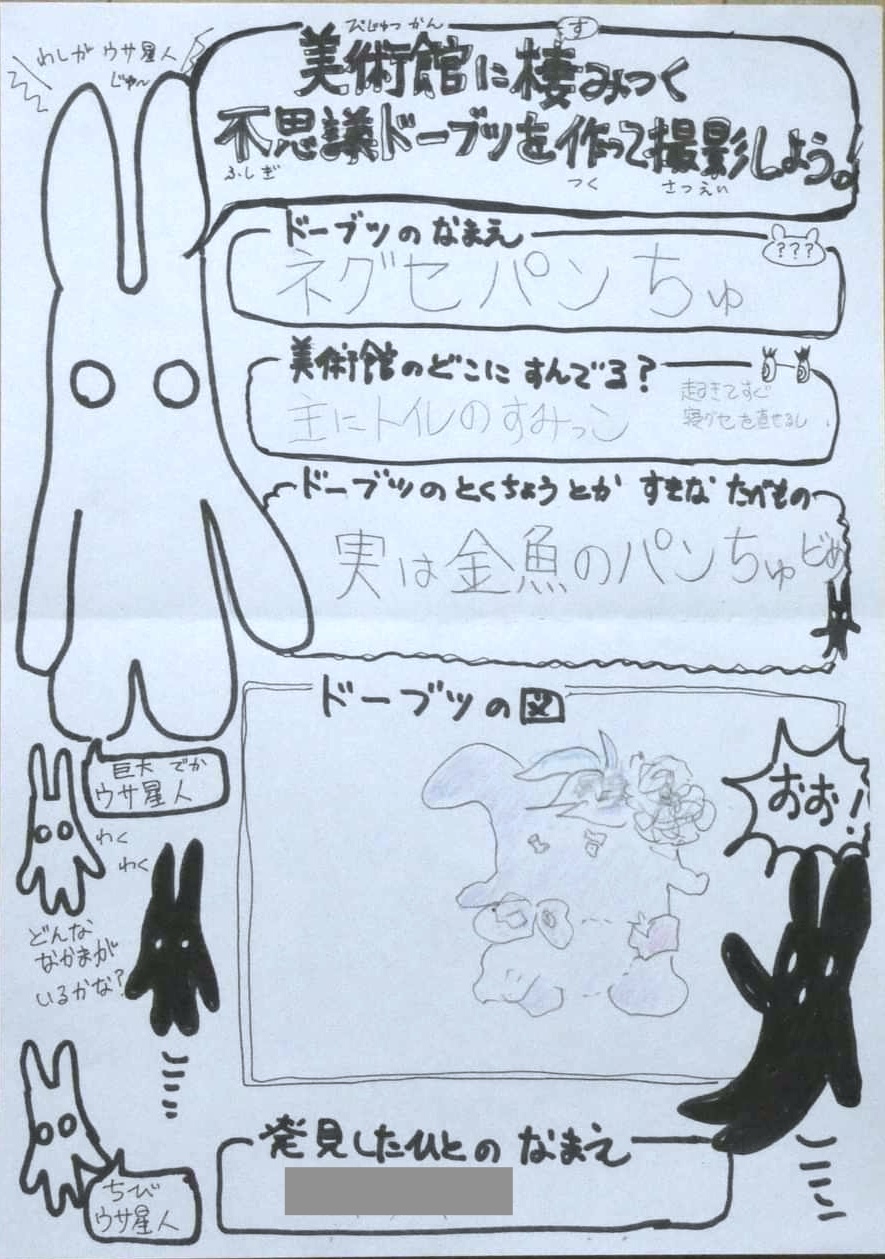 わしが ウサ星人
じゃ〜
びじゅつかん
す
美術館に棲みつく
不思議ドーブツを作って撮影しよう。!
ふしぎ
つく
さつえい
ドーブツの なまえ
???
ネグセパンちゅ
美術館のどこに すんでる?
主にトイレのすみっこ
起きてすぐ
寝グセを直せるし
ドーブツの とくちょうとか すきな たべもの
実は金魚のパンちゅどめ
ドーブツの図
巨大 でか
ウサ星人
わく
わく
おお!
どんな
なかまが
いるかな?
発見したひとの なまえ
ちび
ウサ星人